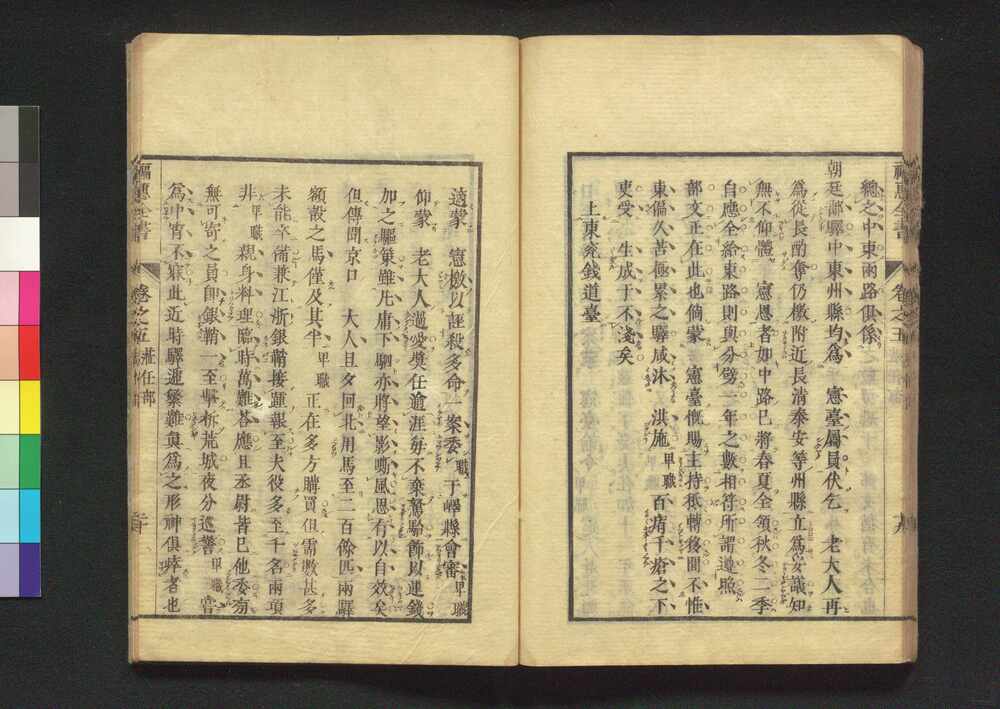 福惠全書 卷之五 十九
總之中東兩路俱係
朝廷郵驛中東州縣均為 憲臺屬員伏乞 老大人再
為從長酌奪仍檄附近長清泰安等州縣立為安議知
無不仰體 憲恩者如中路已將春夏全領秋冬二季
自應全給東路則與分劈三年之數相符所謂遵照
部文正在此也倘蒙 憲臺慨賜主持抵轉後聞不惟
東偏久苦極累之驛咸沐 洪施卑職百痏千瘡之下
更受 生成于不淺矣
上東兗錢道臺
適蒙 憲檄以誣殺多命一案委職于嶧縣會審卑職
仰蒙 老大人過愛獎任逾涯每不棄駑駘飾以連錢
加之驅策雖凡庸下駟亦將望影嘶風思有以自效矣
但傳聞京口 大人且夕回北用馬至二百餘匹兩驛
額設之馬僅及其半卑職正在多方購買但需數甚多
未能卒備兼江浙銀鞘接踵報至夫役多至千名兩項
非卑職親身料理臨時萬難荅應且丞尉皆已他委旁
無可寄之員即銀鞘一至擊柝荒城夜分巡警卑職嘗
為中宵不寐此近時驛遞繁難負為之形神俱瘁者也
福惠全書 卷之五 莅任部 二十